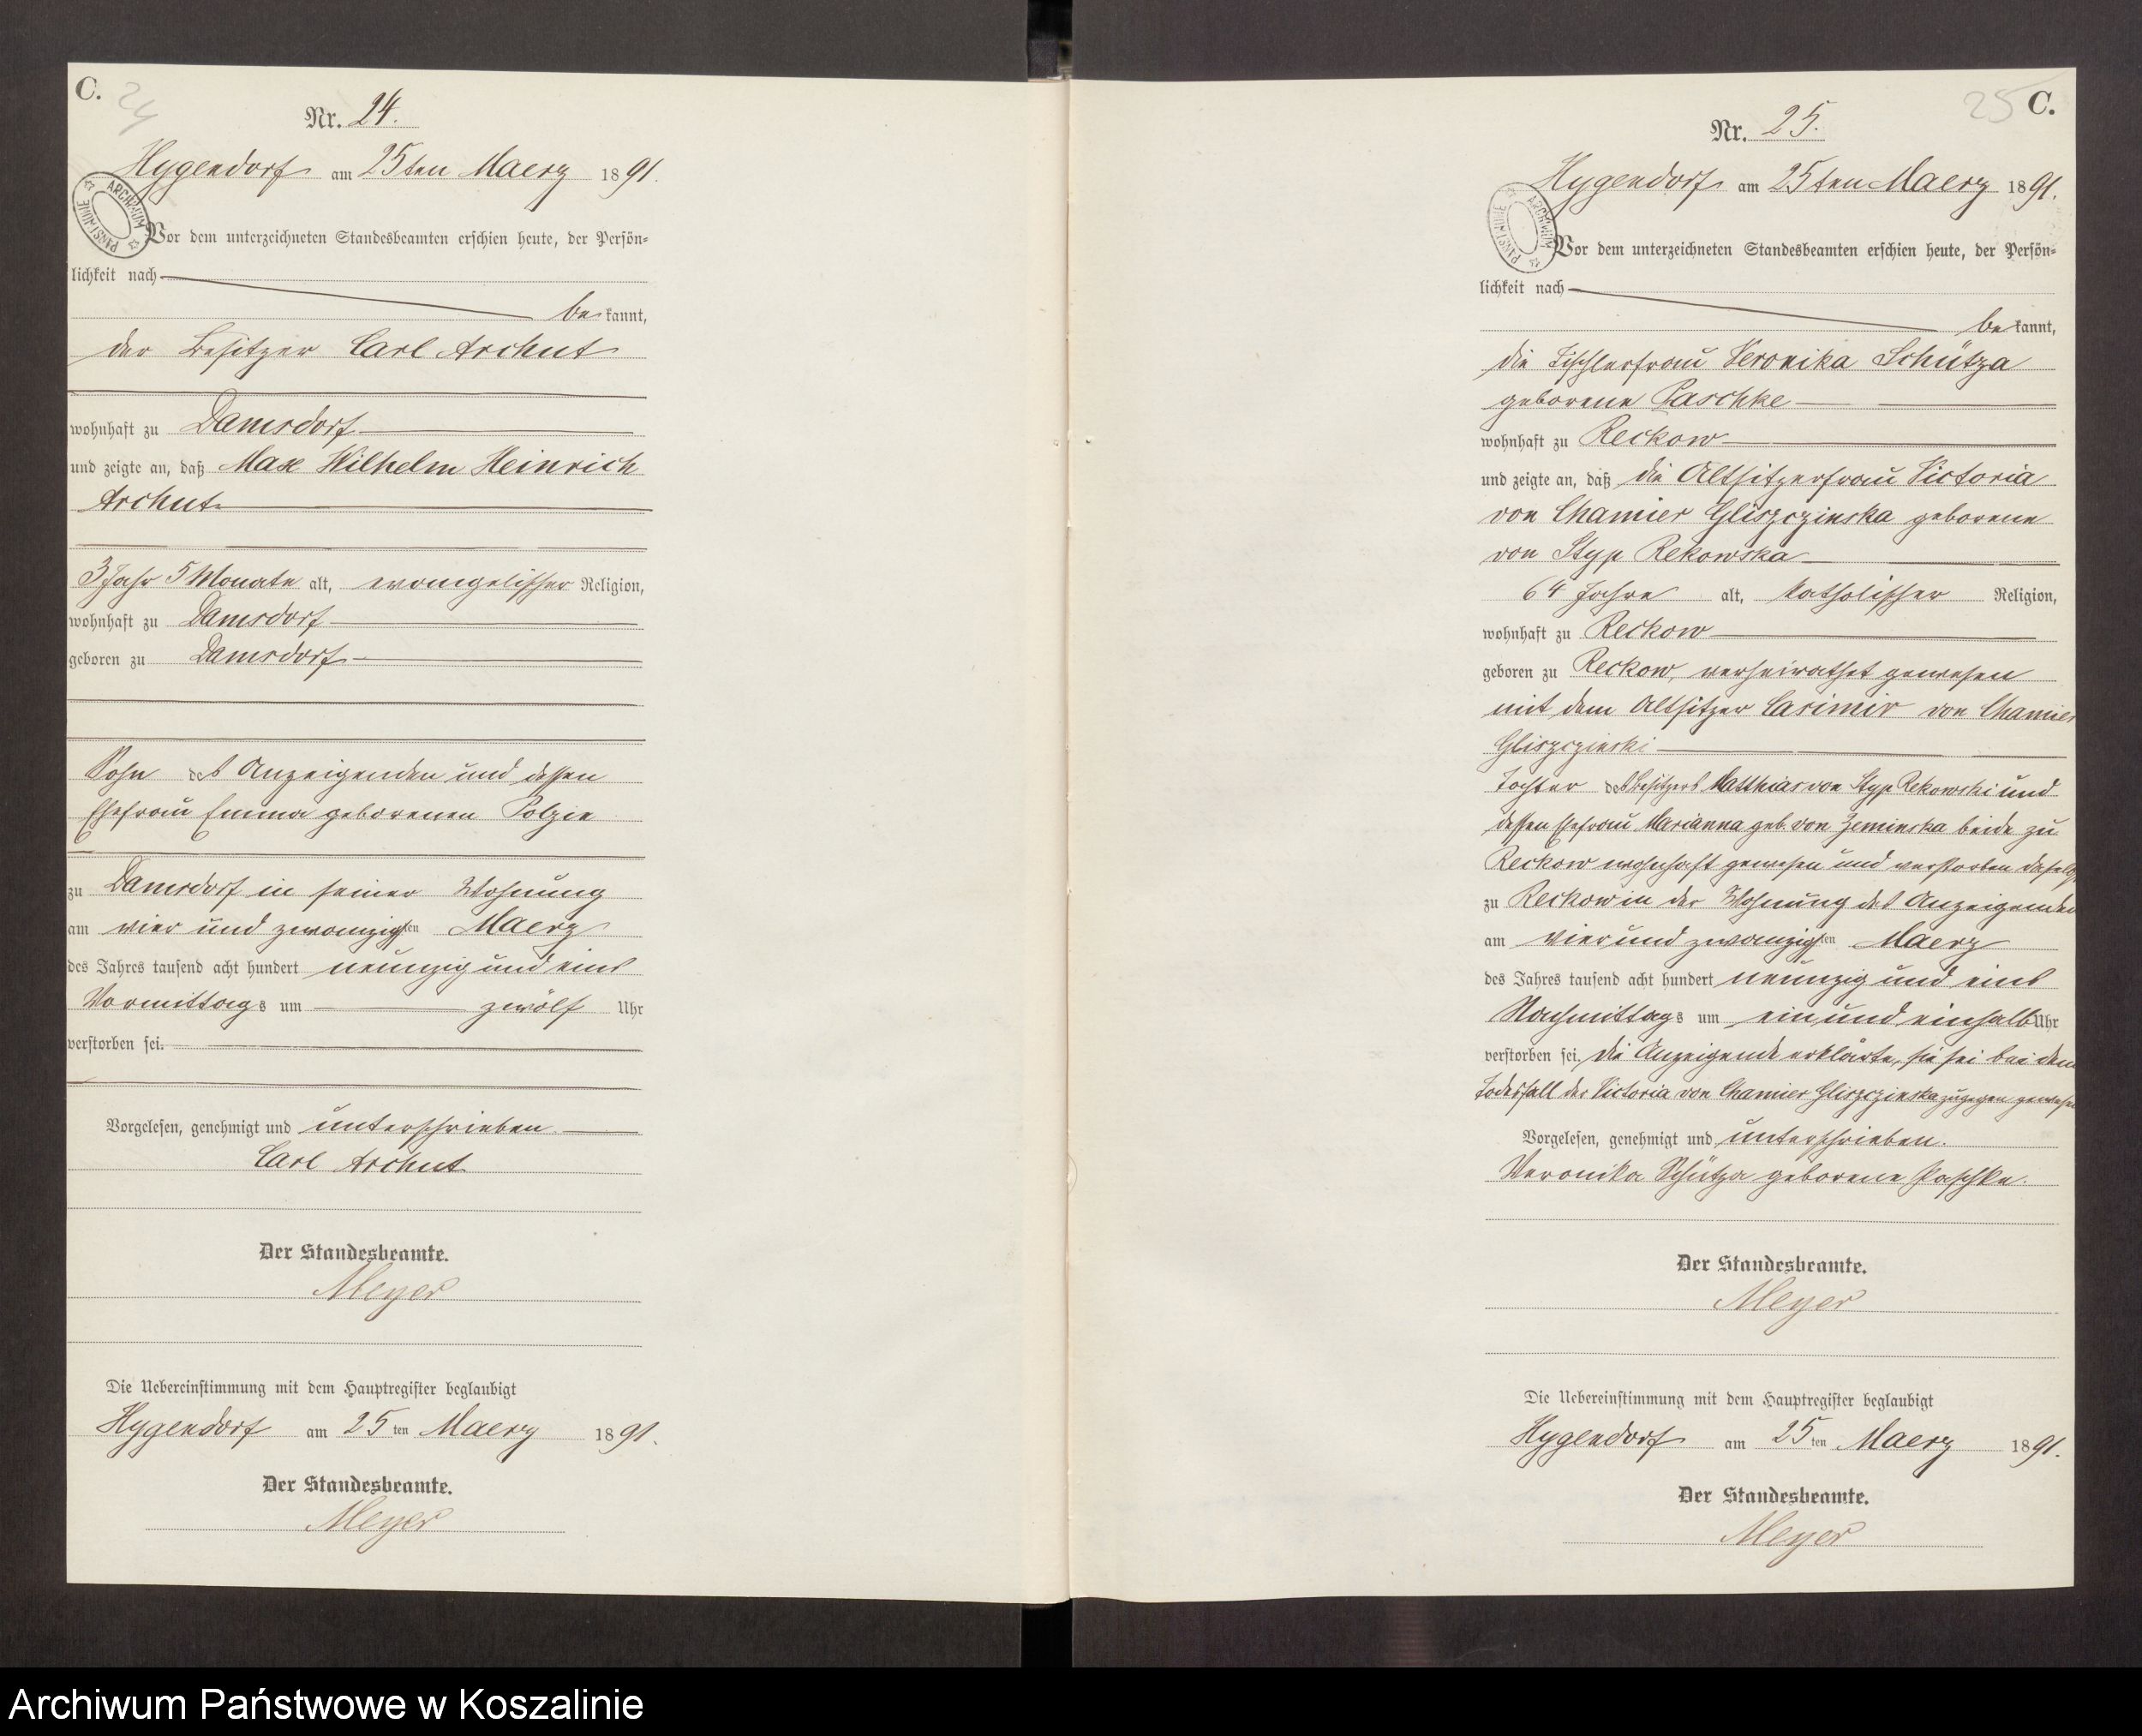 C.
24
Nr. 24.
Hygendorf am 25ten Maerz 1891.
ARCHIWUM PAŃSTWOWE
Vor dem unterzeichneten Standesbeamten erschien heute, der Persön-
lichkeit nach
bekannt,
der Besitzer Carl Archut
wohnhaft zu Damsdorf
und zeigte an, daß Max Wilhelm Heinrich
Archut
3 Jahr 5 Monate alt, evangelischer Religion,
wohnhaft zu Damsdorf
geboren zu Damsdorf
Sohn des Anzeigenden und dessen
Ehefrau Emma geborenen Polzin
zu Damsdorf in seiner Wohnung
am vier und zwanzigsten Maerz
des Jahres tausend acht hundert neunzig und eins
Vormittags um zwölf Uhr
verstorben sei.
Vorgelesen, genehmigt und unterschrieben.
Carl Archut
Der Standesbeamte.
Meyer
Die Uebereinstimmung mit dem Hauptregister beglaubigt
Hygendorf am 25ten Maerz 1891.
Der Standesbeamte.
Meyer
25 C.
Nr. 25.
Hygendorf am 25ten Maerz 1891.
ARCHIWUM PAŃSTWOWE
Vor dem unterzeichneten Standesbeamten erschien heute, der Persön-
lichkeit nach
bekannt,
die Tischlerfrau Veronika Schütza
geborene Paschke
wohnhaft zu Reckow
und zeigte an, daß die Altsitzerfrau Victoria
von Chamier Gliszczinska geborene
von Styp Rekowska
64 Jahre alt, katholischer Religion,
wohnhaft zu Reckow
geboren zu Reckow, verheirathet gewesen
mit dem Altsitzer Casimir von Chamier
Gliszczinski
Tochter des Besitzers Matthias von Styp Rekowski und
dessen Ehefrau Marianna geb. von Zeminska beide zu
Reckow wohnhaft gewesen und verstorben daselbst
zu Reckow in der Wohnung des Anzeigenden
am vier und zwanzigsten Maerz
des Jahres tausend acht hundert neunzig und eins
Nachmittags um ein und einhalb Uhr
verstorben sei. die Anzeigende erklärte, sie sei bei dem
Todesfall der Victoria von Chamier Gliszczinska zugegen gewesen
Vorgelesen, genehmigt und unterschrieben.
Veronika Schütza geborene Paschke.
Der Standesbeamte.
Meyer
Die Uebereinstimmung mit dem Hauptregister beglaubigt
Hygendorf am 25ten Maerz 1891.
Der Standesbeamte.
Meyer
Archiwum Państwowe w Koszalinie